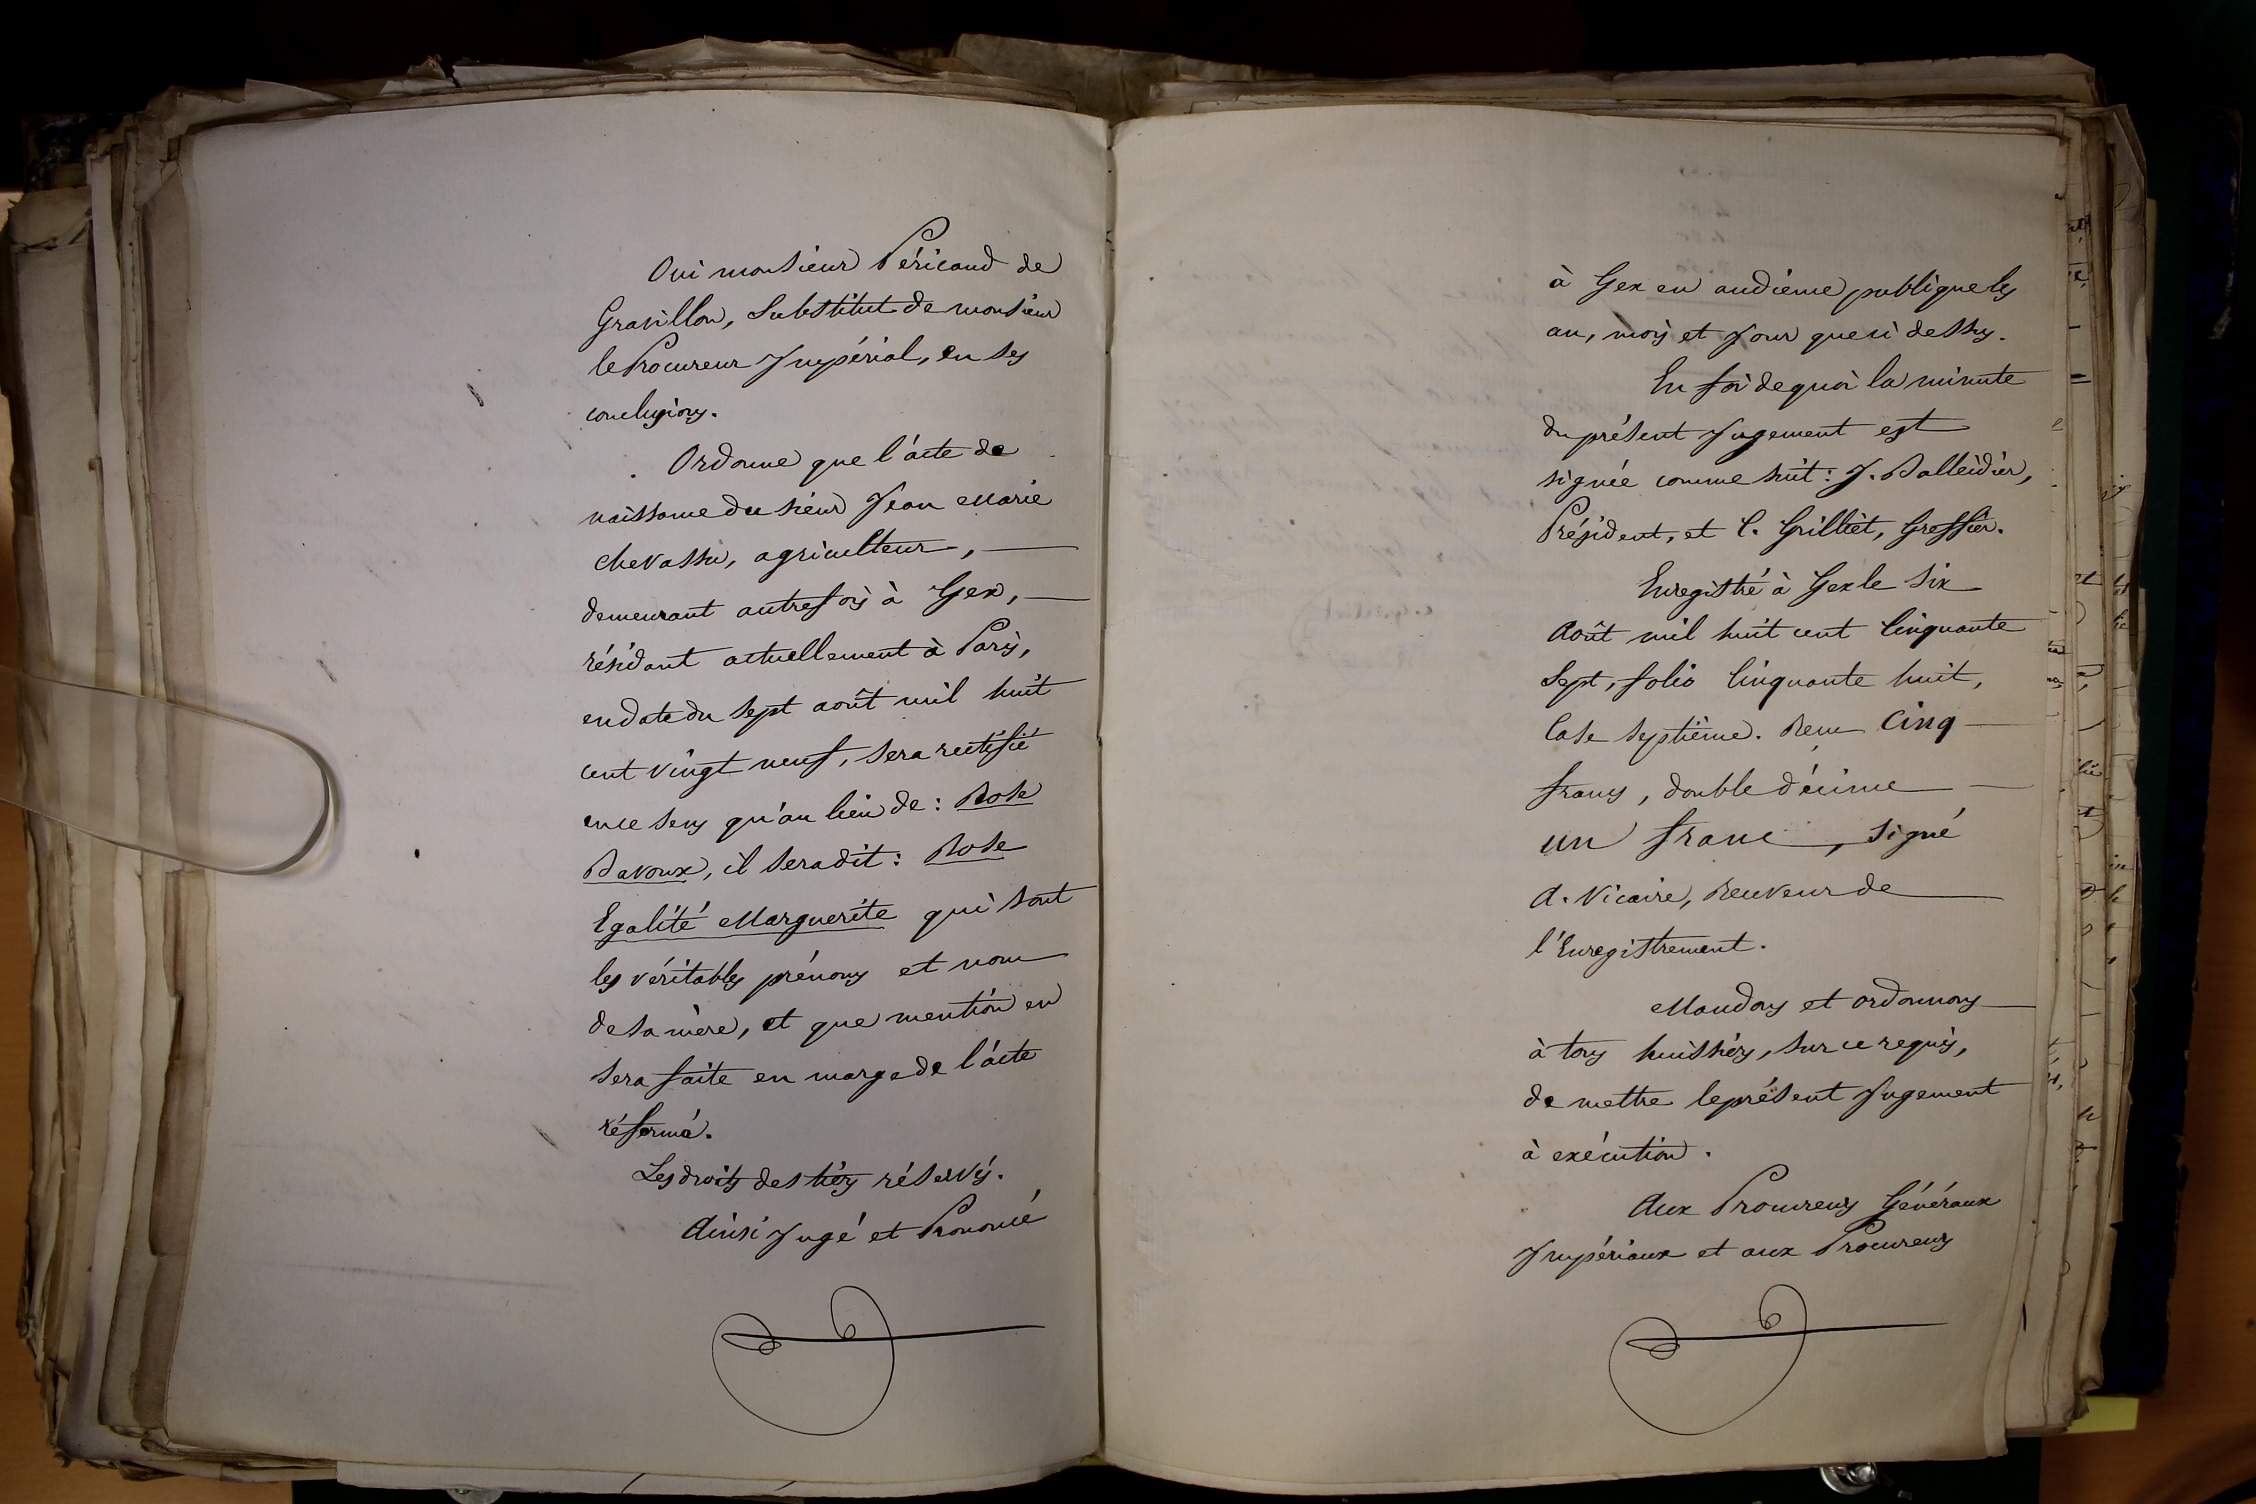 Oui monsieur Péricaud de
Gravillon, Substitut de monsieur
le Procureur Impérial, en ses
conclusions.
Ordonne que l'acte de
naissance du sieur Jean Marie
Chevassu, agriculteur,
demeurant autrefois à Gex,
résidant actuellement à Paris,
en date du sept août mil huit
cent vingt neuf, sera rectifié
en ce sens qu'au lieu de : Rose
Davoux, il sera dit : Rose
Egalité Marguerite qui sont
les véritables prénoms et nom
de sa mère, et que mention en
sera faite en marge de l'acte
réformé.
Les droits des tiers réservés.
Ainsi Jugé et Prononcé
à Gex en audience publique les
an, mois et Jour que ci dessus.
En foi de quoi la minute
du présent Jugement est
signée comme suit : J. Balleidier,
Président, et C. Grilliet, Greffier.
Enregistré à Gex le six
Août mil huit cent Cinquante
Sept, folio Cinquante huit,
Case septième. Reçu Cinq
francs, double décime
un franc, signé
A. Vicaire, Receveur de
l'Enregistrement.
Mandons et ordonnons
à tous huissiers, sur ce requis,
de mettre le présent Jugement
à exécution.
Aux Procureurs Généraux
Impériaux et aux Procureurs